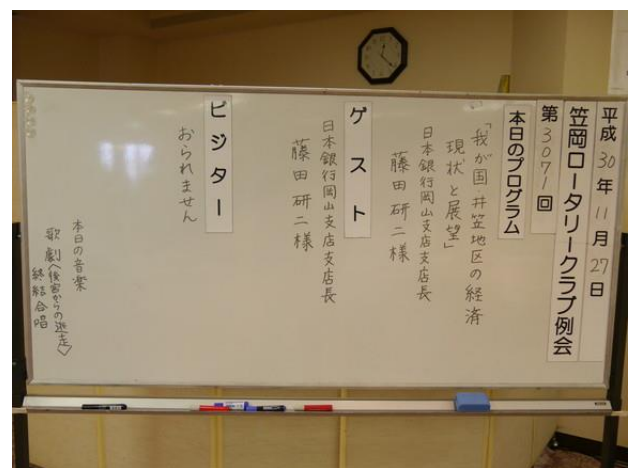 平成30年11月27日
笠岡ロータリークラブ例会
第3071回
本日のプログラム
「我が国・井笠地区の経済
現状と展望」
日本銀行岡山支店支店長
藤田研二様
ゲスト
日本銀行岡山支店支店長
藤田研二様
ビジター
おられません
本日の音楽
歌劇〈後宮からの逃走〉
終結合唱